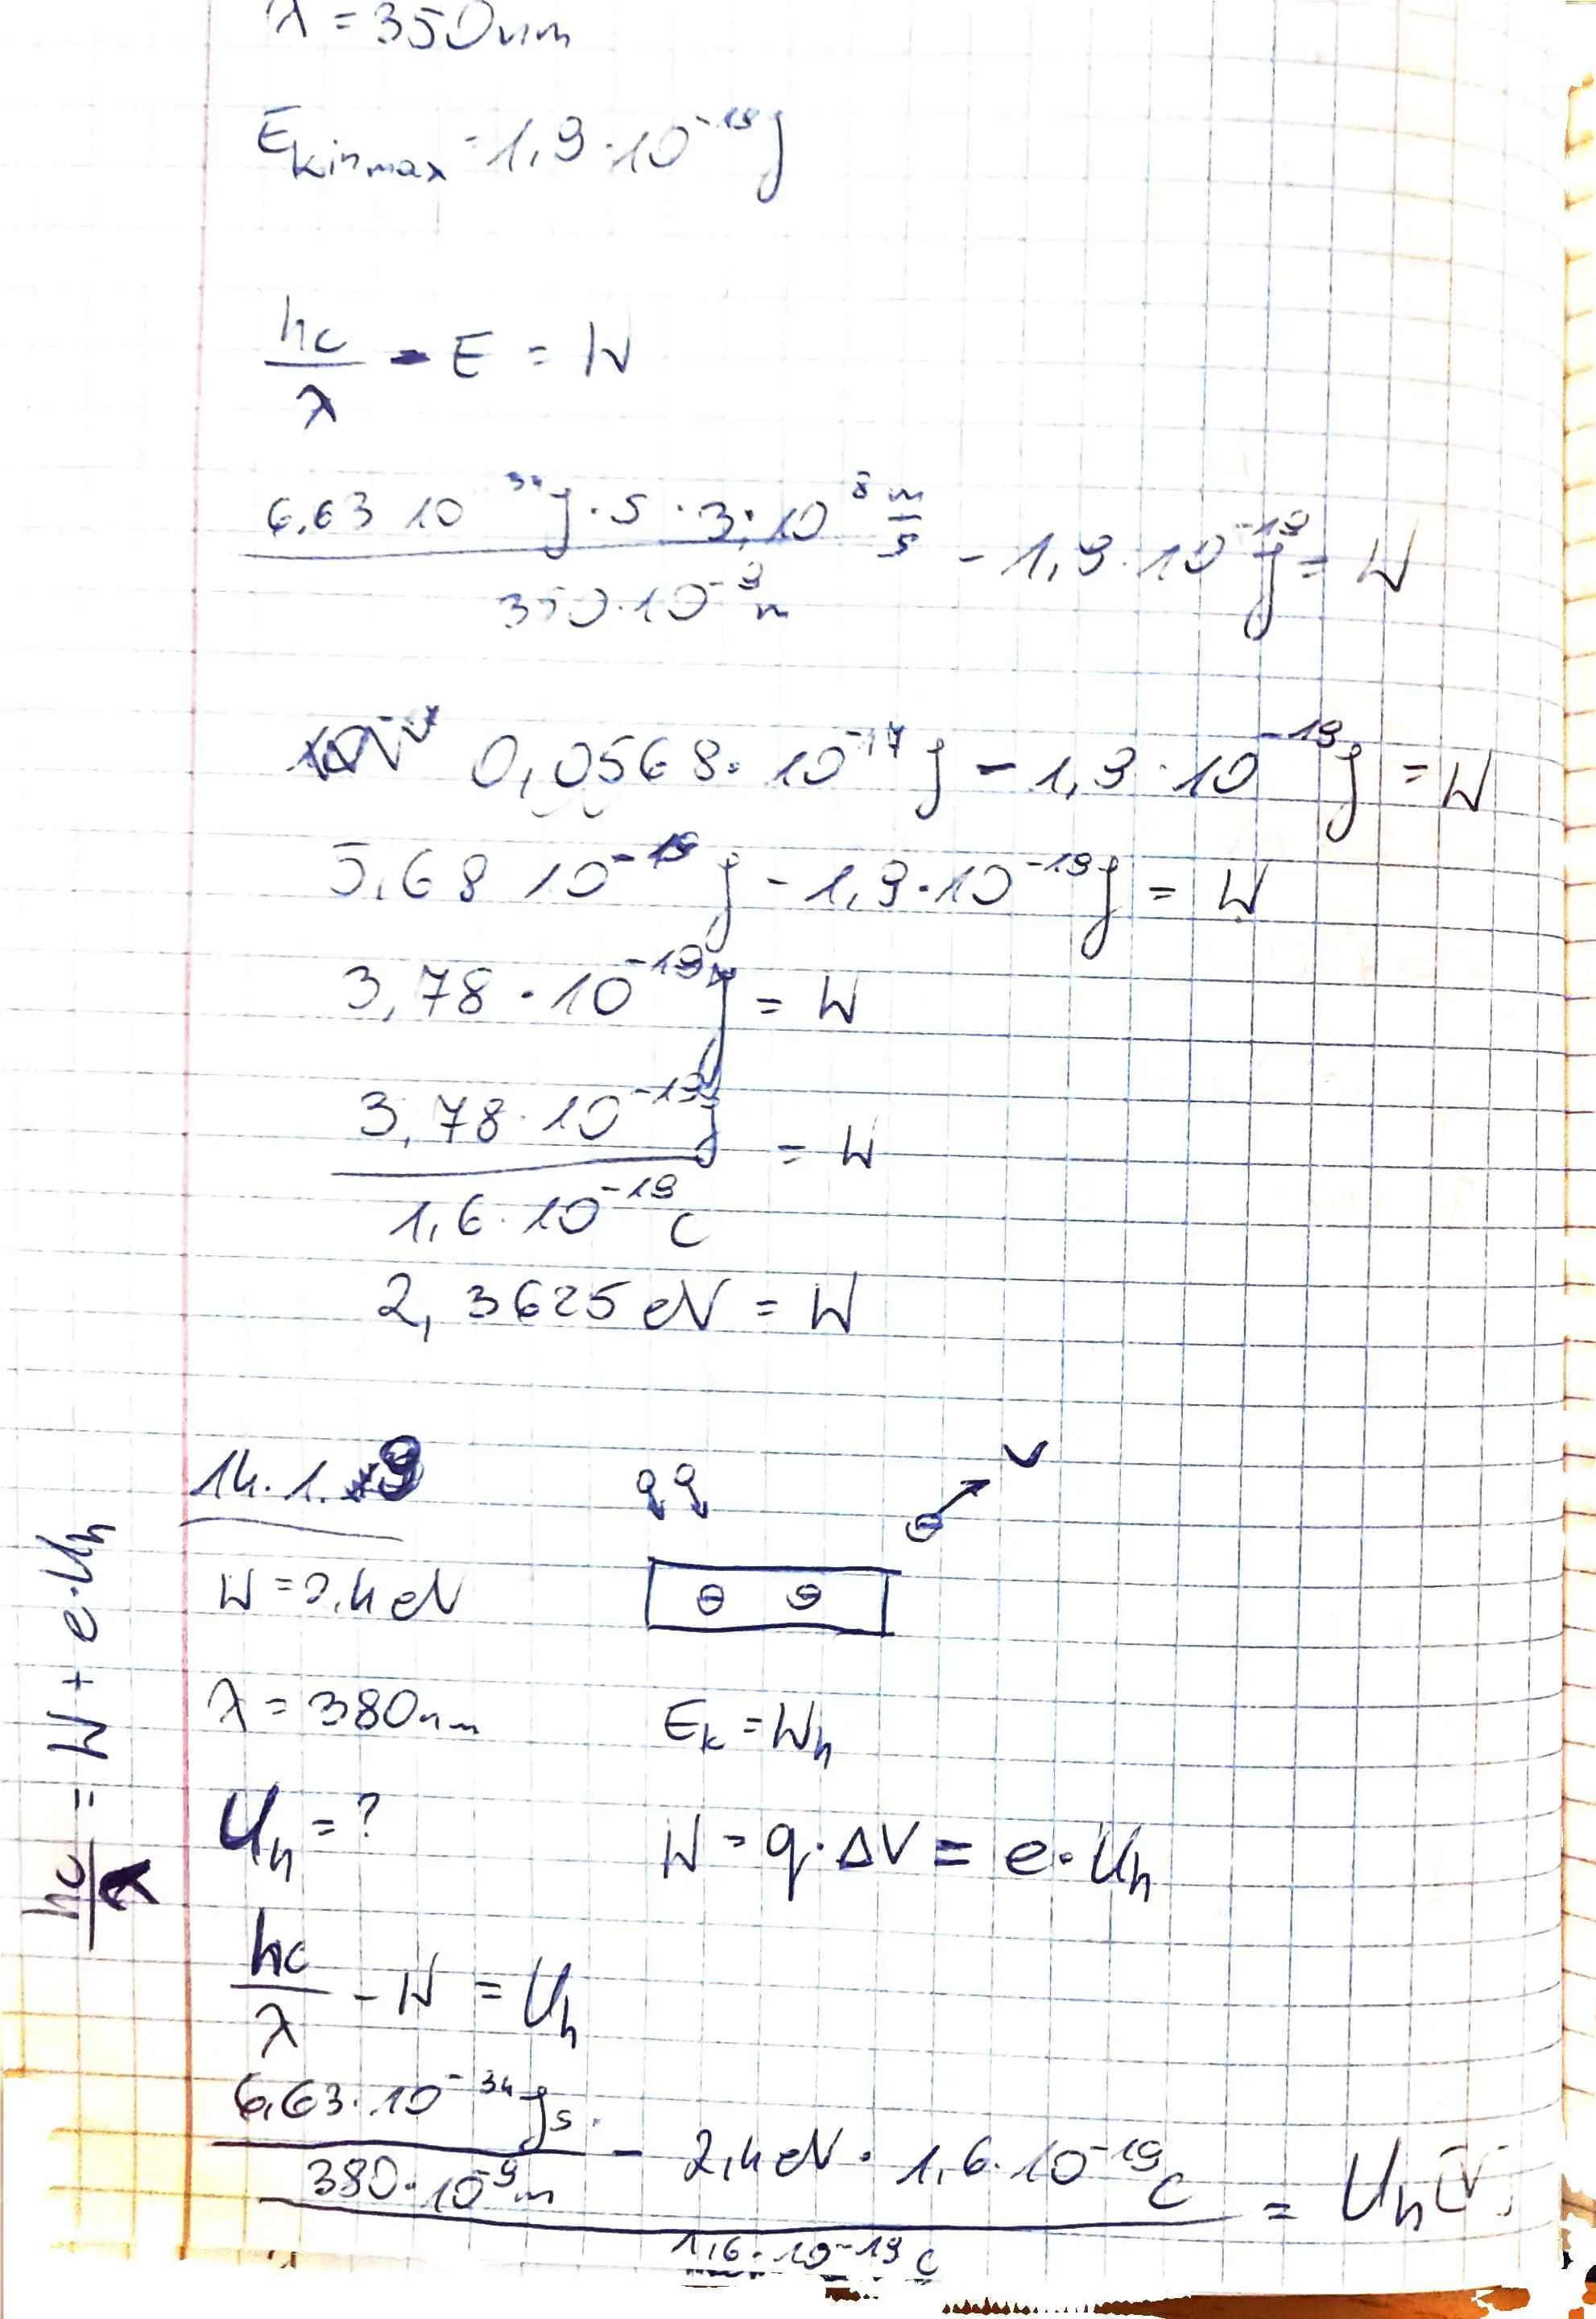 λ = 350nm
E kin max = 1,9 · 10⁻¹⁹ J
hc/λ - E = W
6,63 10⁻³⁴ J · s · 3 · 10⁸ m/s / 350 · 10⁻⁹ m - 1,9 · 10⁻¹⁹ J = W
0,0568 · 10⁻¹⁷ J - 1,9 · 10⁻¹⁹ J = W
5,68 10⁻¹⁹ J - 1,9 · 10⁻¹⁹ J = W
3,78 · 10⁻¹⁹ J = W
3,78 · 10⁻¹⁹ J / 1,6 · 10⁻¹⁹ C = W
2,3625 eV = W
14.1.9
V
W = 2,4 eV
⊖ ⊖
λ = 380nm
E_k = W_h
U_h = ?
W = q · ΔV = e · U_h
hc/λ = W + e · U_h
hc/λ - W = U_h
6,63 · 10⁻³⁴ Js · / 380 · 10⁻⁹ m - 2,4 eV · 1,6 · 10⁻¹⁹ C / 1,6 · 10⁻¹⁹ C = U_h [V]